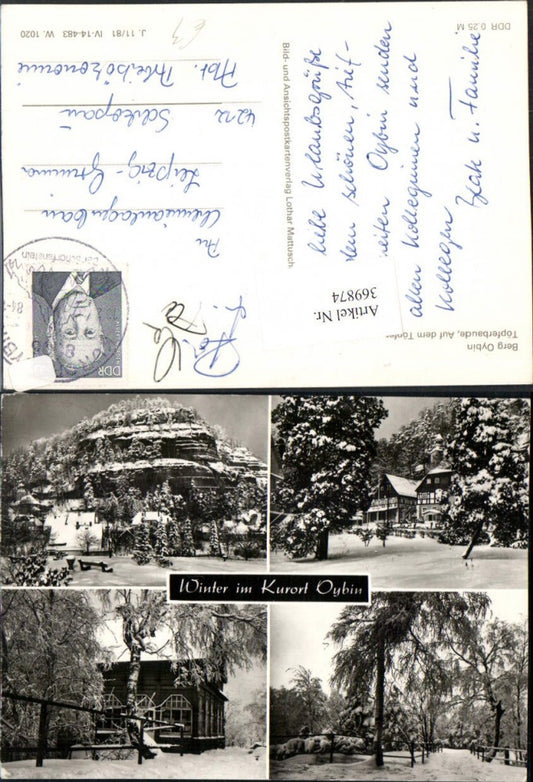 DDR 0.25 M
J. 11/81 IV-14-483 W. 1020
Liebe Urlaubsgrüße
dem schönen
Oybin senden
allen Kolleginnen und
Kollegen
u. Familie
Bild- und Ansichtspostkartenverlag Lothar Mattusch
An
Chemieanlagenbau
Leipzig-Grimma
4212 Schkopau
Abt.
Artikel Nr.
369874
DDR
Berg Oybin
Töpferbaude, Auf dem Töpfer
Winter im Kurort Oybin